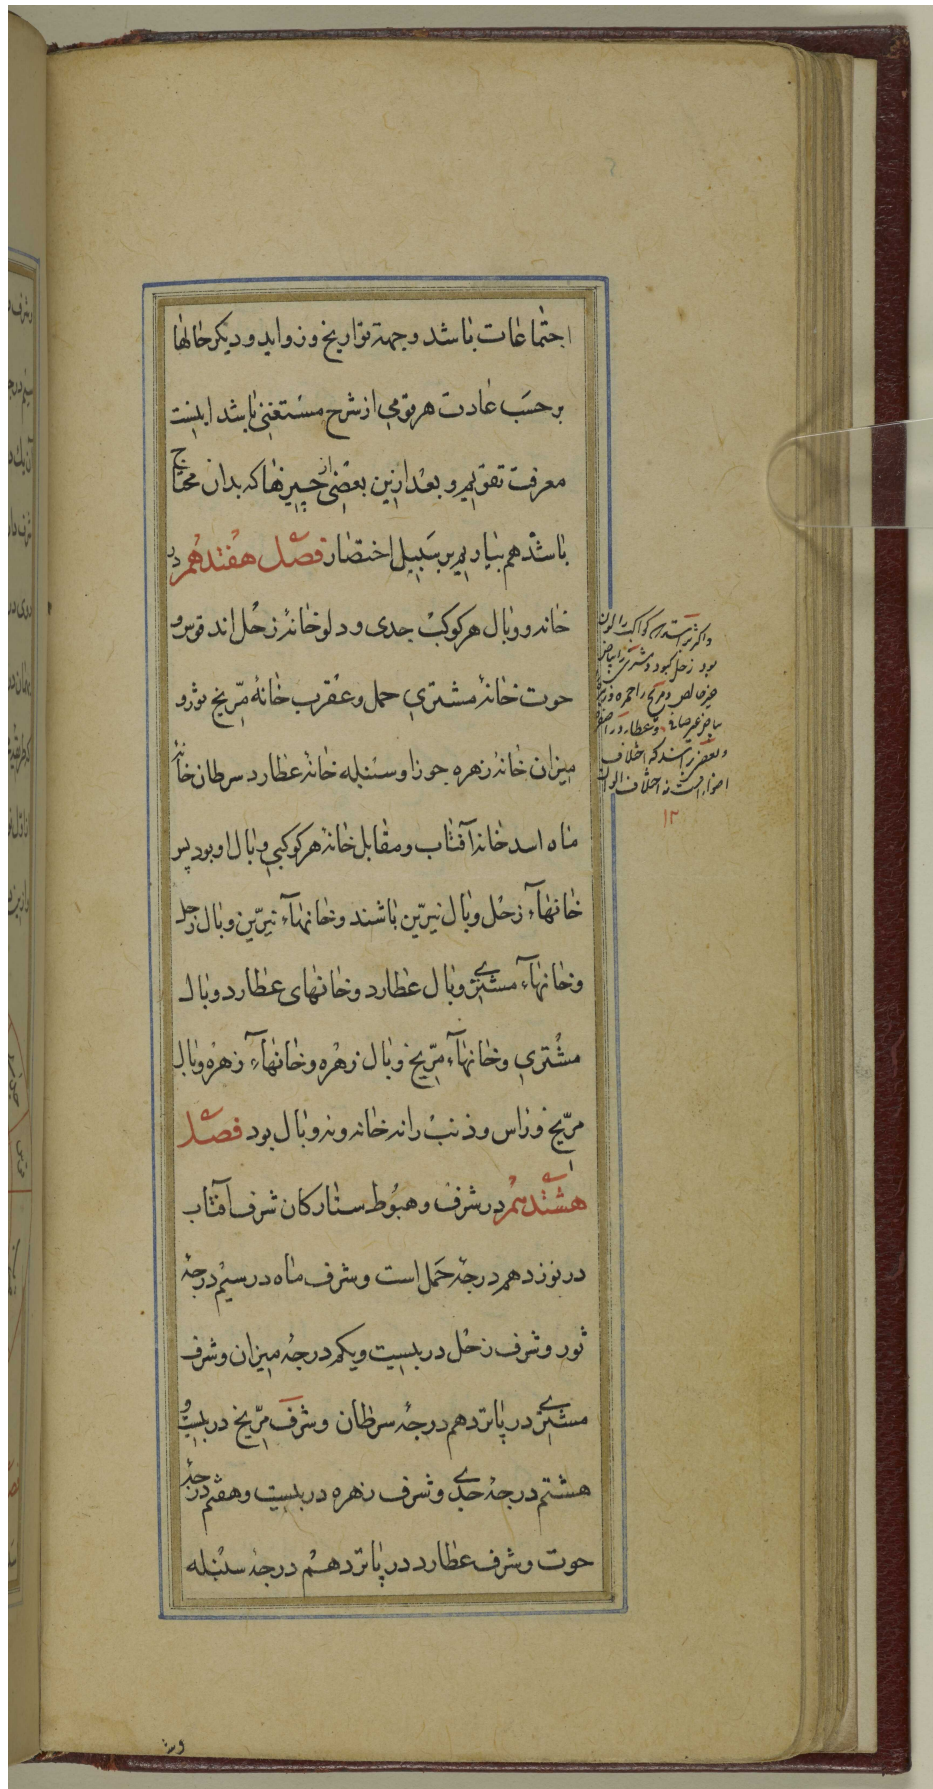 اجتماعات باشد وجهة تواریخ وزواید ودیکر حالها
برحسب عادت هر قومی از شرح مستغنی باشد اینست
معرفت تقویم وبعد ازین بعضی از چیزها که بدان محتاج
باشد هم بیاوریم بر سبیل اختصار فصل هفتدهم در
خانه ووبال هر کوکب جدی ودلو خانهٔ زحل اند قوس و
حوت خانهٔ مشتری حمل وعقرب خانهٔ مرّیخ ثور و
میزان خانهٔ زهره جوزا وسنبله خانهٔ عطارد سرطان خانهٔ
ماه اسد خانه آفتاب ومقابل خانهٔ هر کوکبی وبال او بود پس
خانهآء زحل وبال نیرّین باشند وخانهآء نیرّین وبال زحل
وخانهآء مشتری وبال عطارد وخانهای عطارد وبال
مشتری وخانهآء مرّیخ وبال زهره وخانهآء زهره وبال
مرّیخ وراس وذنب را نه خانه ونه وبال بود فصل
هشتدهم در شرف وهبوط ستارکان شرف آفتاب
در نوزدهم درجهٔ حمل است وشرف ماه در سیم درجهٔ
ثور وشرف زحل در بیست ویکم درجهٔ میزان وشرف
مشتری در پانزدهم درجهٔ سرطان وشرف مرّیخ در بیست و
هشتم درجهٔ جدی وشرف زهره در بیست وهفتم درجهٔ
حوت وشرف عطارد در پانزدهم درجهٔ سنبله
واکثر برآنند که کواکب را الوان
بود زحل کبود ومشتری را بیاض
ومریخ را حمره
وعطارد را صفر
وبعضی برآنند که اختلاف
اضواء است نه اختلاف الوان
۱۲
وش